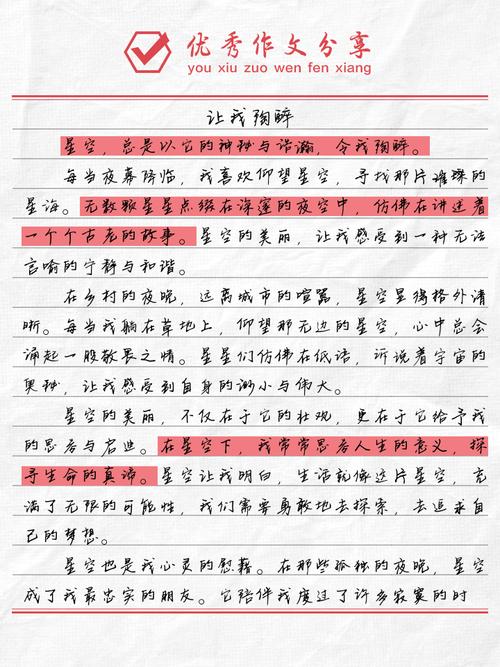 优秀作文分享
you xiu zuo wen fen xiang
让我陶醉
星空，总是以它的神秘与浩瀚，令我陶醉。
每当夜幕降临，我喜欢仰望星空，寻找那片璀璨的
星海。无数颗星星点缀在深邃的夜空中，仿佛在讲述着
一个个古老的故事。星空的美丽，让我感受到一种无法
言喻的宁静与和谐。
在乡村的夜晚，远离城市的喧嚣，星空显得格外清
晰。每当我躺在草地上，仰望那无边的星空，心中总会
涌起一股敬畏之情。星星们仿佛在低语，诉说着宇宙的
奥秘，让我感受到自身的渺小与伟大。
星空的美丽，不仅在于它的壮观，更在于它给予我
的思考与启迪。在星空下，我常常思考人生的意义，探
寻生命的真谛。星空让我明白，生活就像这片星空，充
满了无限的可能性，我们需要勇敢地去探索，去追求自
己的梦想。
星空也是我心灵的慰藉。在那些孤独的夜晚，星空
成了我最忠实的朋友。它陪伴我度过了许多寂寞的时